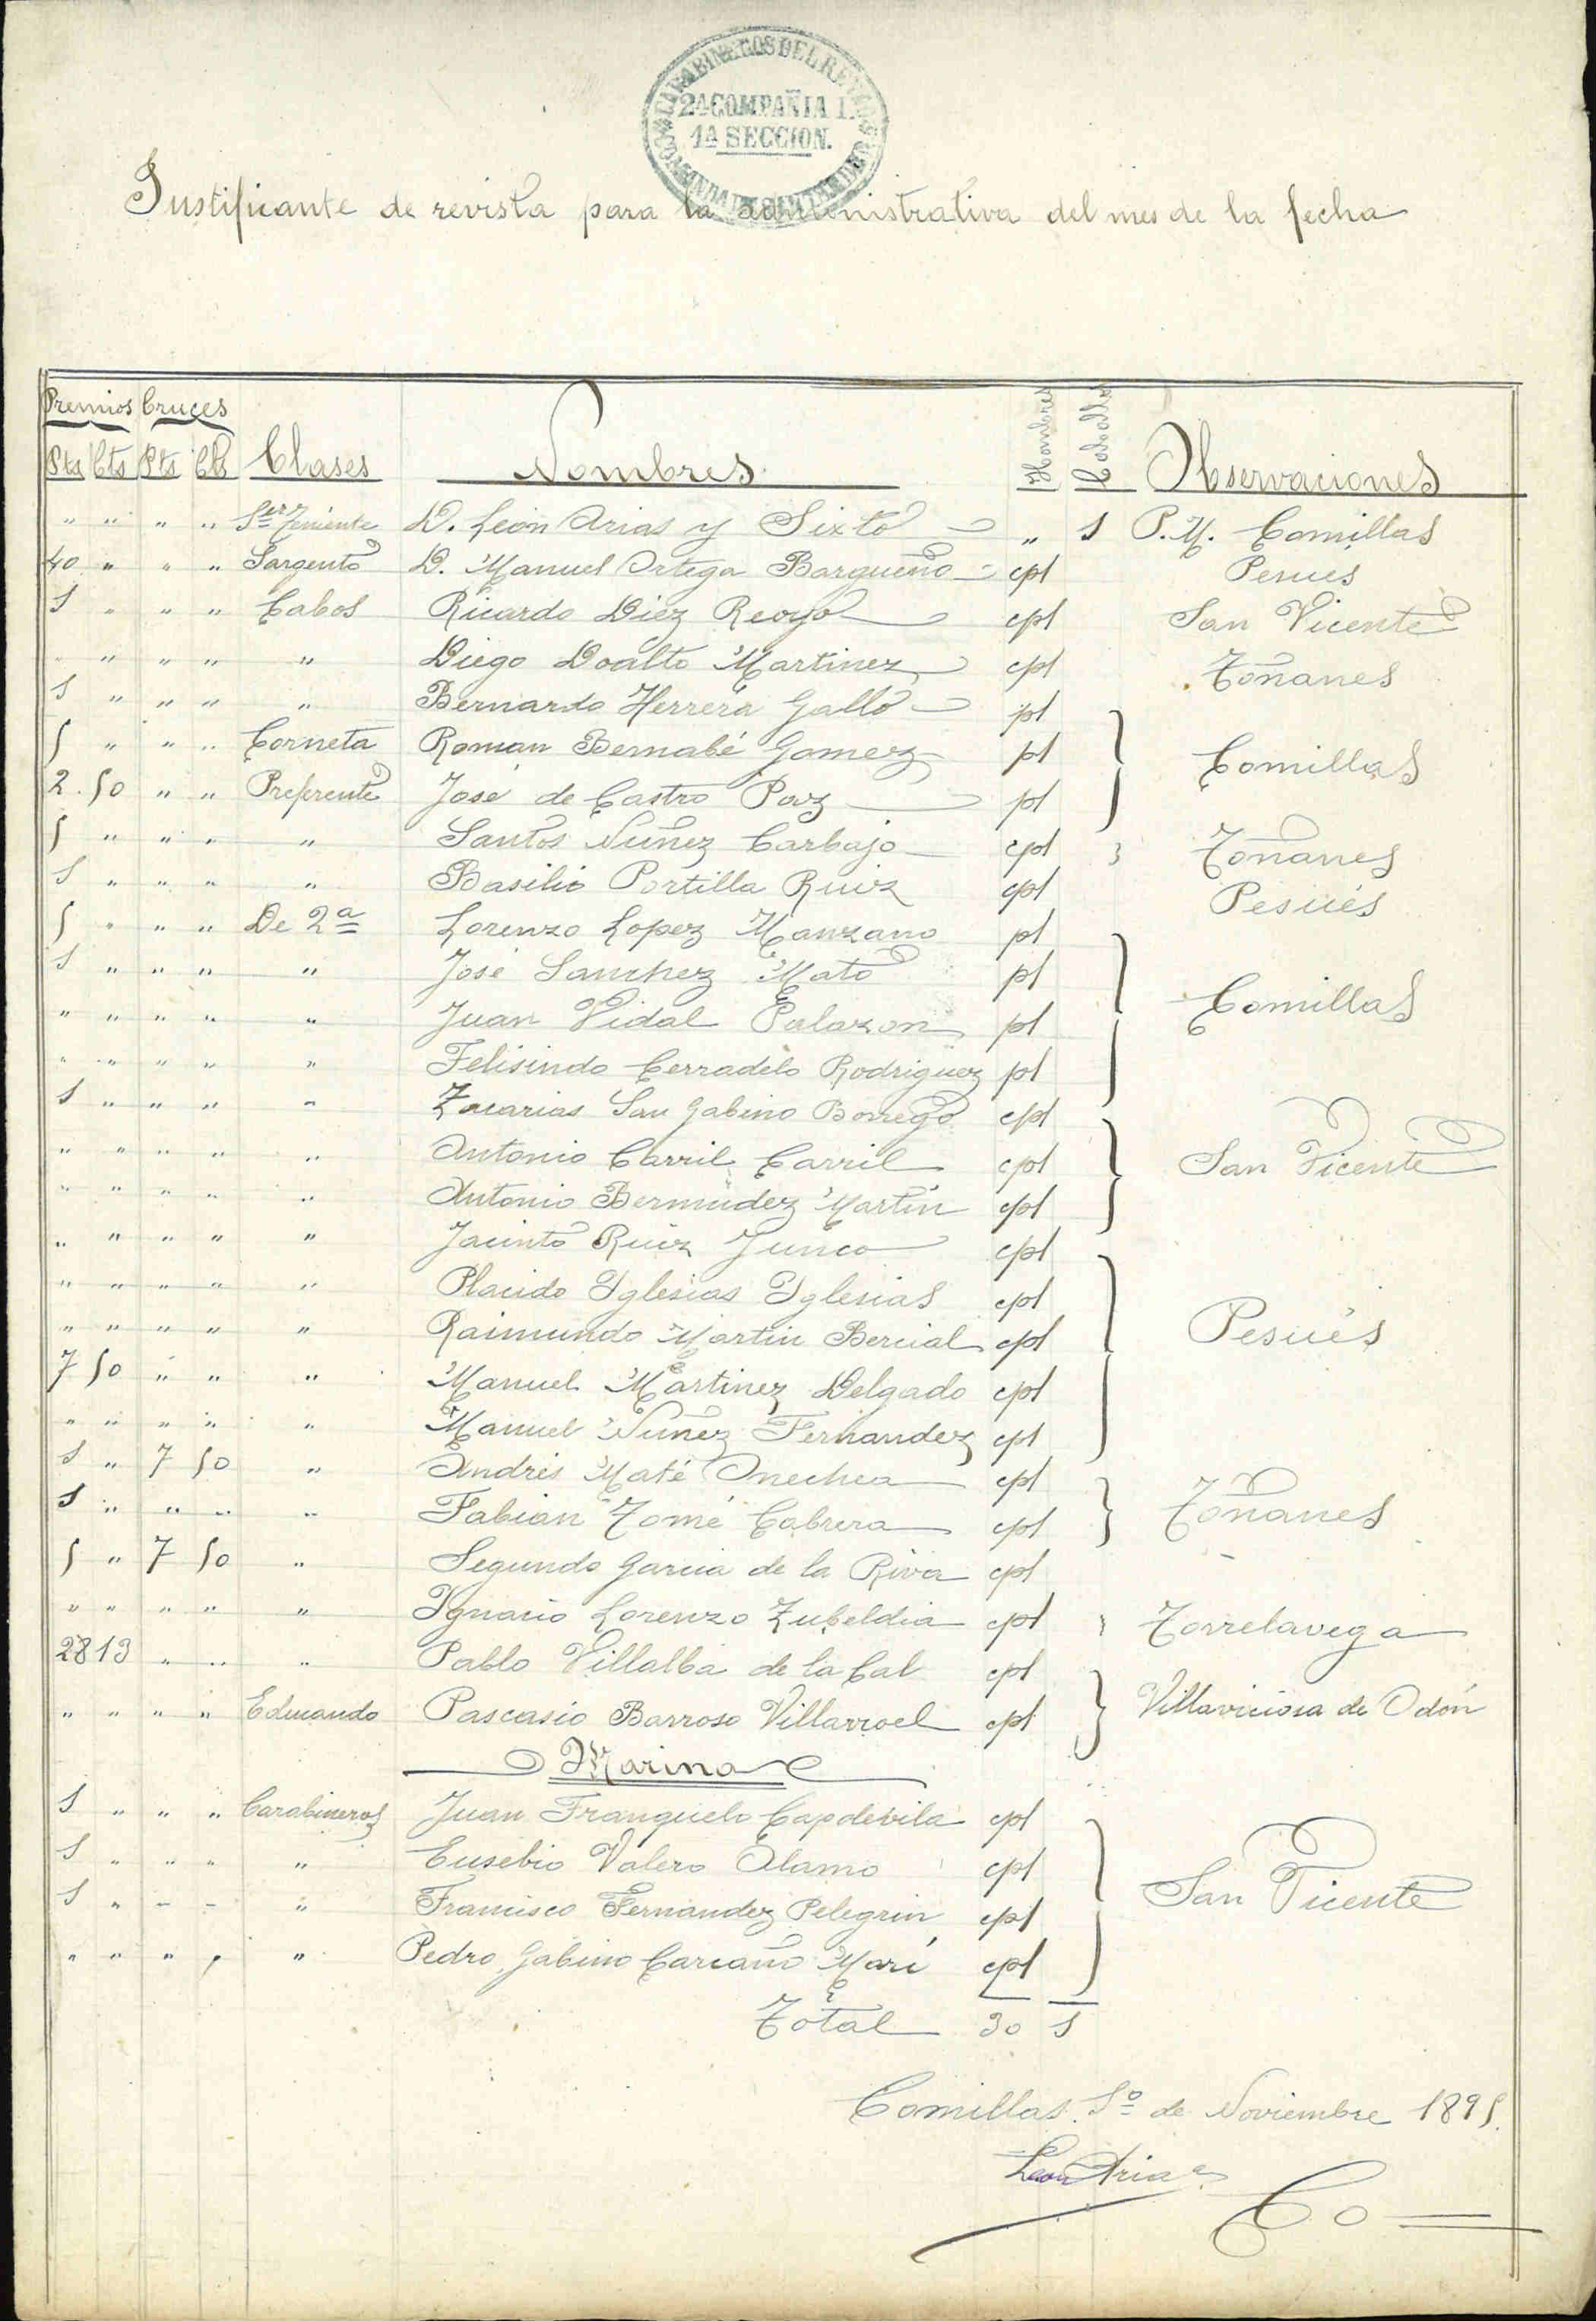 CARABINEROS DEL REINO
2ª COMPAÑIA
1ª SECCION.
COMANDA DE SANTANDER
Justificante de revista para la administrativa del mes de la fecha
Premios Cruces Hombres Caballos
Pts Cts Pts Cts Clases Nombres Observaciones
" " " " 1er Teniente D. León Arias y Sixto " 1 P.M. Comillas
40 " " " Sargento D. Manuel Ortega Bargueño cpl Pesues
5 " " " Cabos Ricardo Diez Reoyo cpl San Vicente
" " " " " Diego Doalto Martinez cpl Toñanes
5 " " " " Bernardo Herrera Gallo pl
5 " " " Corneta Roman Bernabé Gomez pl Comillas
2.50 " " Preferente José de Castro Paz pl
5 " " " " Santos Nuñez Carbajo cpl Toñanes
5 " " " " Basilio Portilla Ruiz cpl Pesués
5 " " " De 2ª Lorenzo Lopez Manzano pl
5 " " " " José Sanchez Mato pl
" " " " " Juan Vidal Palazon pl Comillas
" " " " " Felisindo Cerradelo Rodriguez pl
5 " " " " Zacarias San Gabino Borrego cpl
" " " " " Antonio Carril Carril cpl San Vicente
" " " " " Antonio Bermúdez Martín cpl
" " " " " Jacinto Ruiz Junco cpl
" " " " " Placido Yglesias Yglesias cpl
" " " " " Raimundo Martin Bercial cpl Pesués
7 50 " " " Manuel Martinez Delgado cpl
" " " " " Manuel Nuñez Fernandez cpl
5 " 7 50 " Andrés Maté Onechea cpl
5 " " " " Fabian Tomé Cabrera cpl Toñanes
5 " 7 50 " Segundo Garcia de la Riva cpl
" " " " " Ygnacio Lorenzo Zubeldia cpl Torrelavega
28 13 " " " Pablo Villalba de la Cal cpl
" " " " Educando Pascasio Barroso Villarroel cpl Villaviciosa de Odón
Marina
5 " " " Carabineros Juan Franquelo Capdevila cpl
5 " " " " Eusebio Valero Alamo cpl
5 " - - " Francisco Fernandez Pelegrin cpl San Vicente
" " " " " Pedro Gabino Carcaño Marí cpl
Total 30 1
Comillas 1º de Noviembre 1895.
Leon Arias